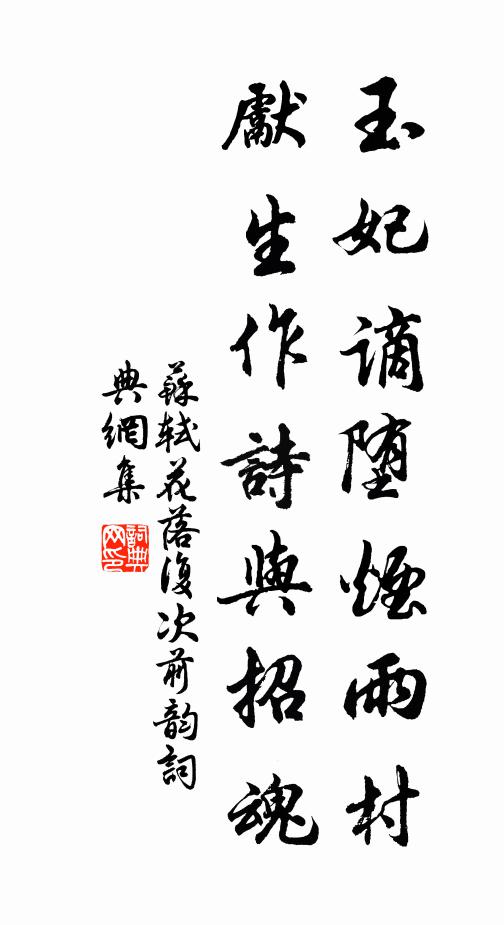 玉妃謫堕煙雨村
獻生作詩與招魂
蘇軾花落復次前韵詞
典網集
詞典
网印